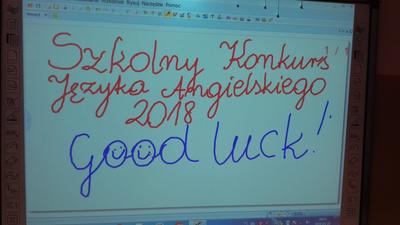 Rysuj Narzędzia Pomoc
Szkolny Konkurs
1 / 1
Języka Angielskiego
2018
Good luck!